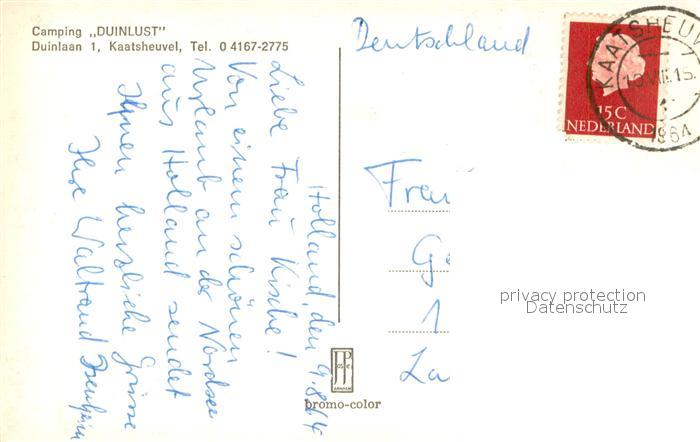 Camping „DUINLUST"
Duinlaan 1, Kaatsheuvel, Tel. 0 4167-2775
Holland, den 9.8.64
Liebe Frau Kische!
Von einem schönen
Urlaub an der Nordsee
aus Holland sendet
Ihnen herzliche Grüsse
Ihre Waltraud
Deutschland
KAATSHEUV
1964
15C
NEDERLAND
Frau
Ge
1
La
privacy protection
Datenschutz
JP
bromo-color